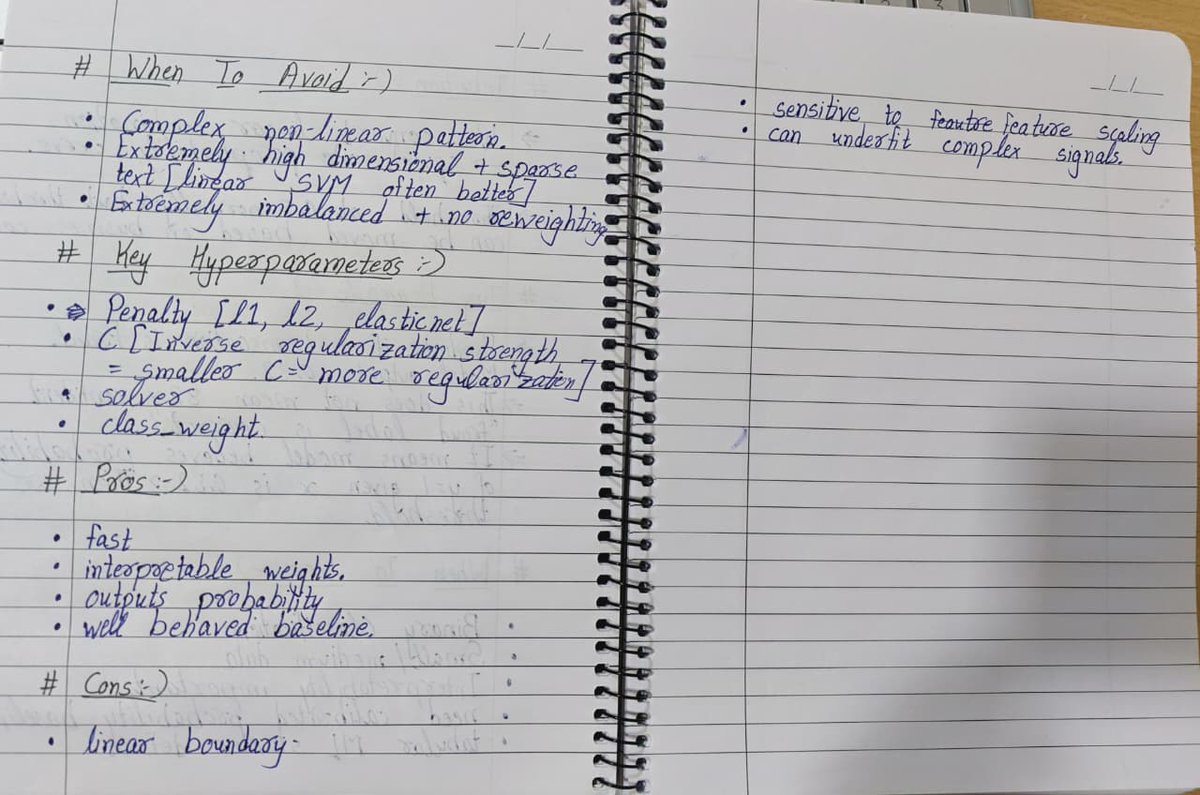 # When To Avoid :-)
• Complex non-linear pattern.
• Extremely high dimensional + sparse
text [linear SVM often better]
• Extremely imbalanced + no reweighting
# Key Hyperparameters :-)
• Penalty [l1, l2, elasticnet]
• C [Inverse regularization strength
= smaller C = more regularization]
• solver
• class_weight.
# Pros :-)
• fast
• interpretable weights.
• outputs probability
• well behaved baseline.
# Cons :-)
• linear boundary.
• sensitive to feature scaling
• can underfit complex signals.